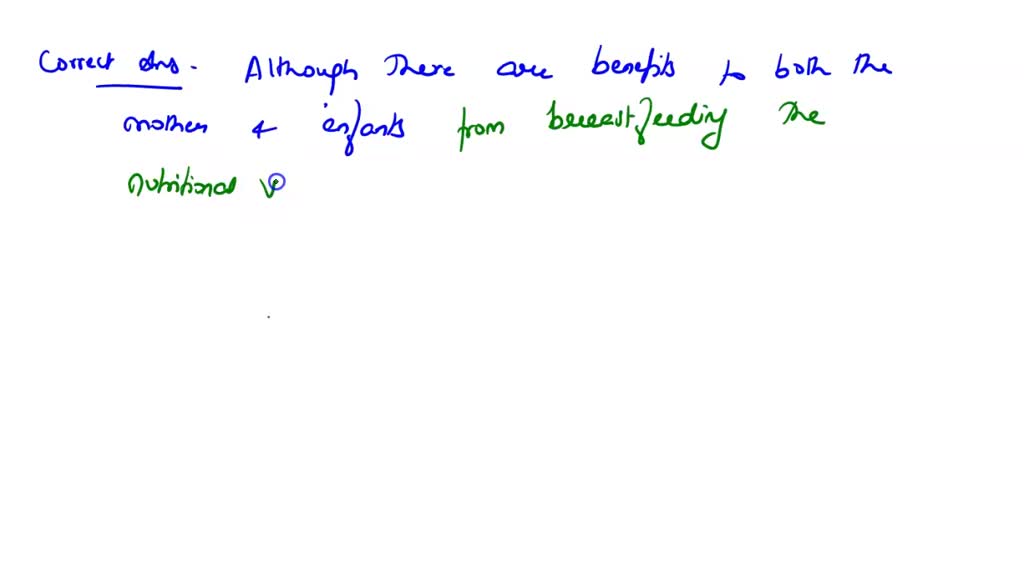 Correct Ans. Although there are benefits to both the
mother & infants from breastfeeding the
nutritional v